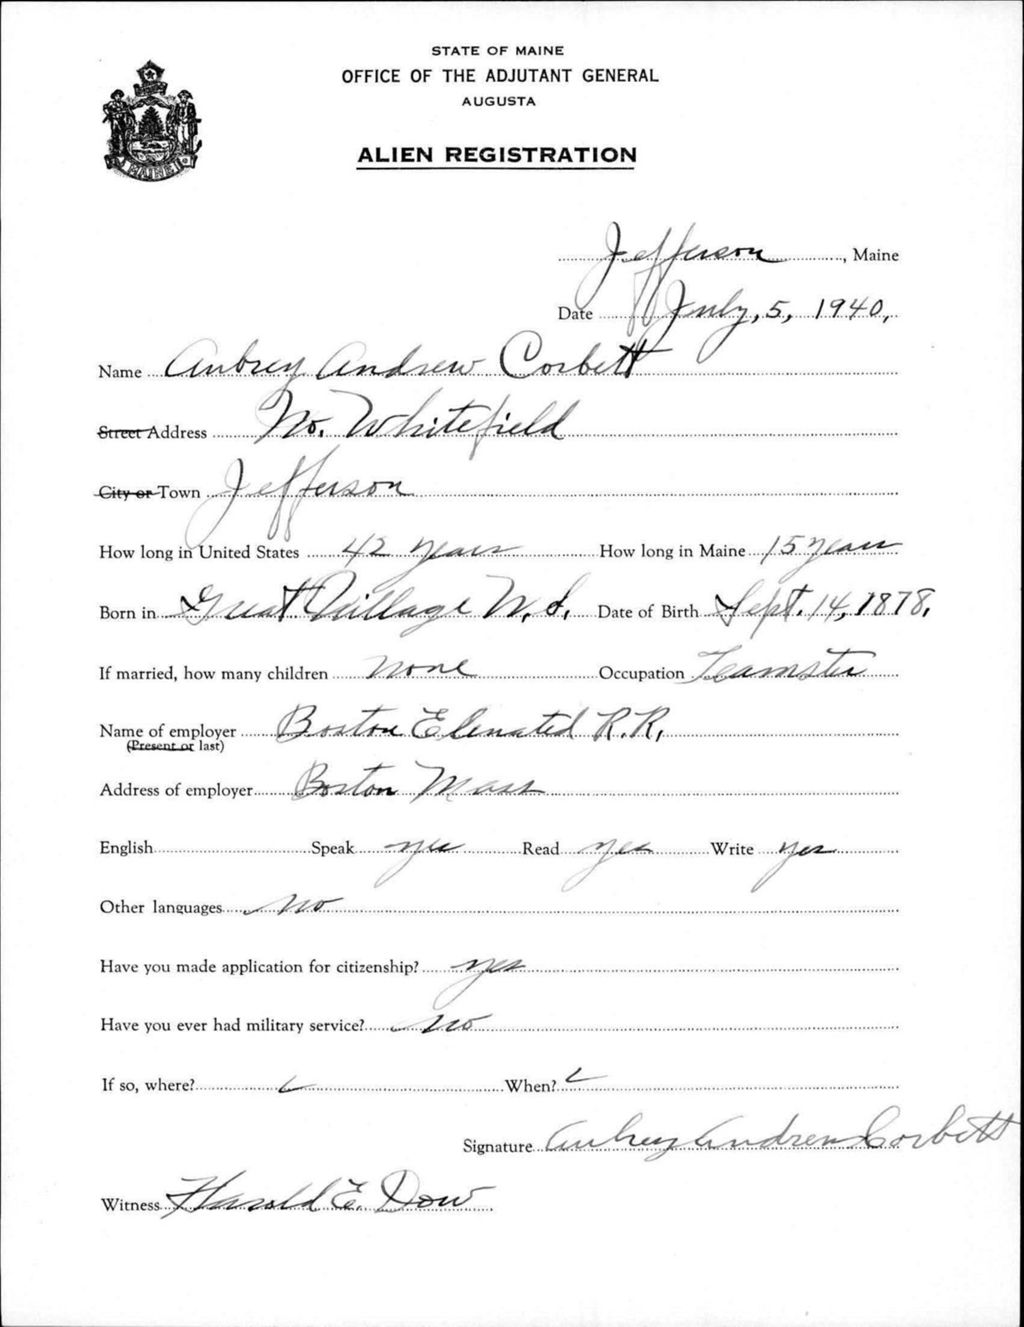 STATE OF MAINE
OFFICE OF THE ADJUTANT GENERAL
AUGUSTA
ALIEN REGISTRATION
MAINE
Jefferson, Maine
Date July, 5, 1940,
Name Aubrey Andrew Corbett
Street Address No. Whitefield
City or Town Jefferson
How long in United States 42 years How long in Maine 15 years
Born in Great Village N. S. Date of Birth Sept. 14, 1878,
If married, how many children none Occupation Teamster
Name of employer Boston Elevated R.R,
(Present or last)
Address of employer Boston Mass
English Speak yes Read yes Write yes
Other languages no
Have you made application for citizenship? yes
Have you ever had military service? no
If so, where? When?
Signature Aubrey Andrew Corbett
Witness Harold E. Dow